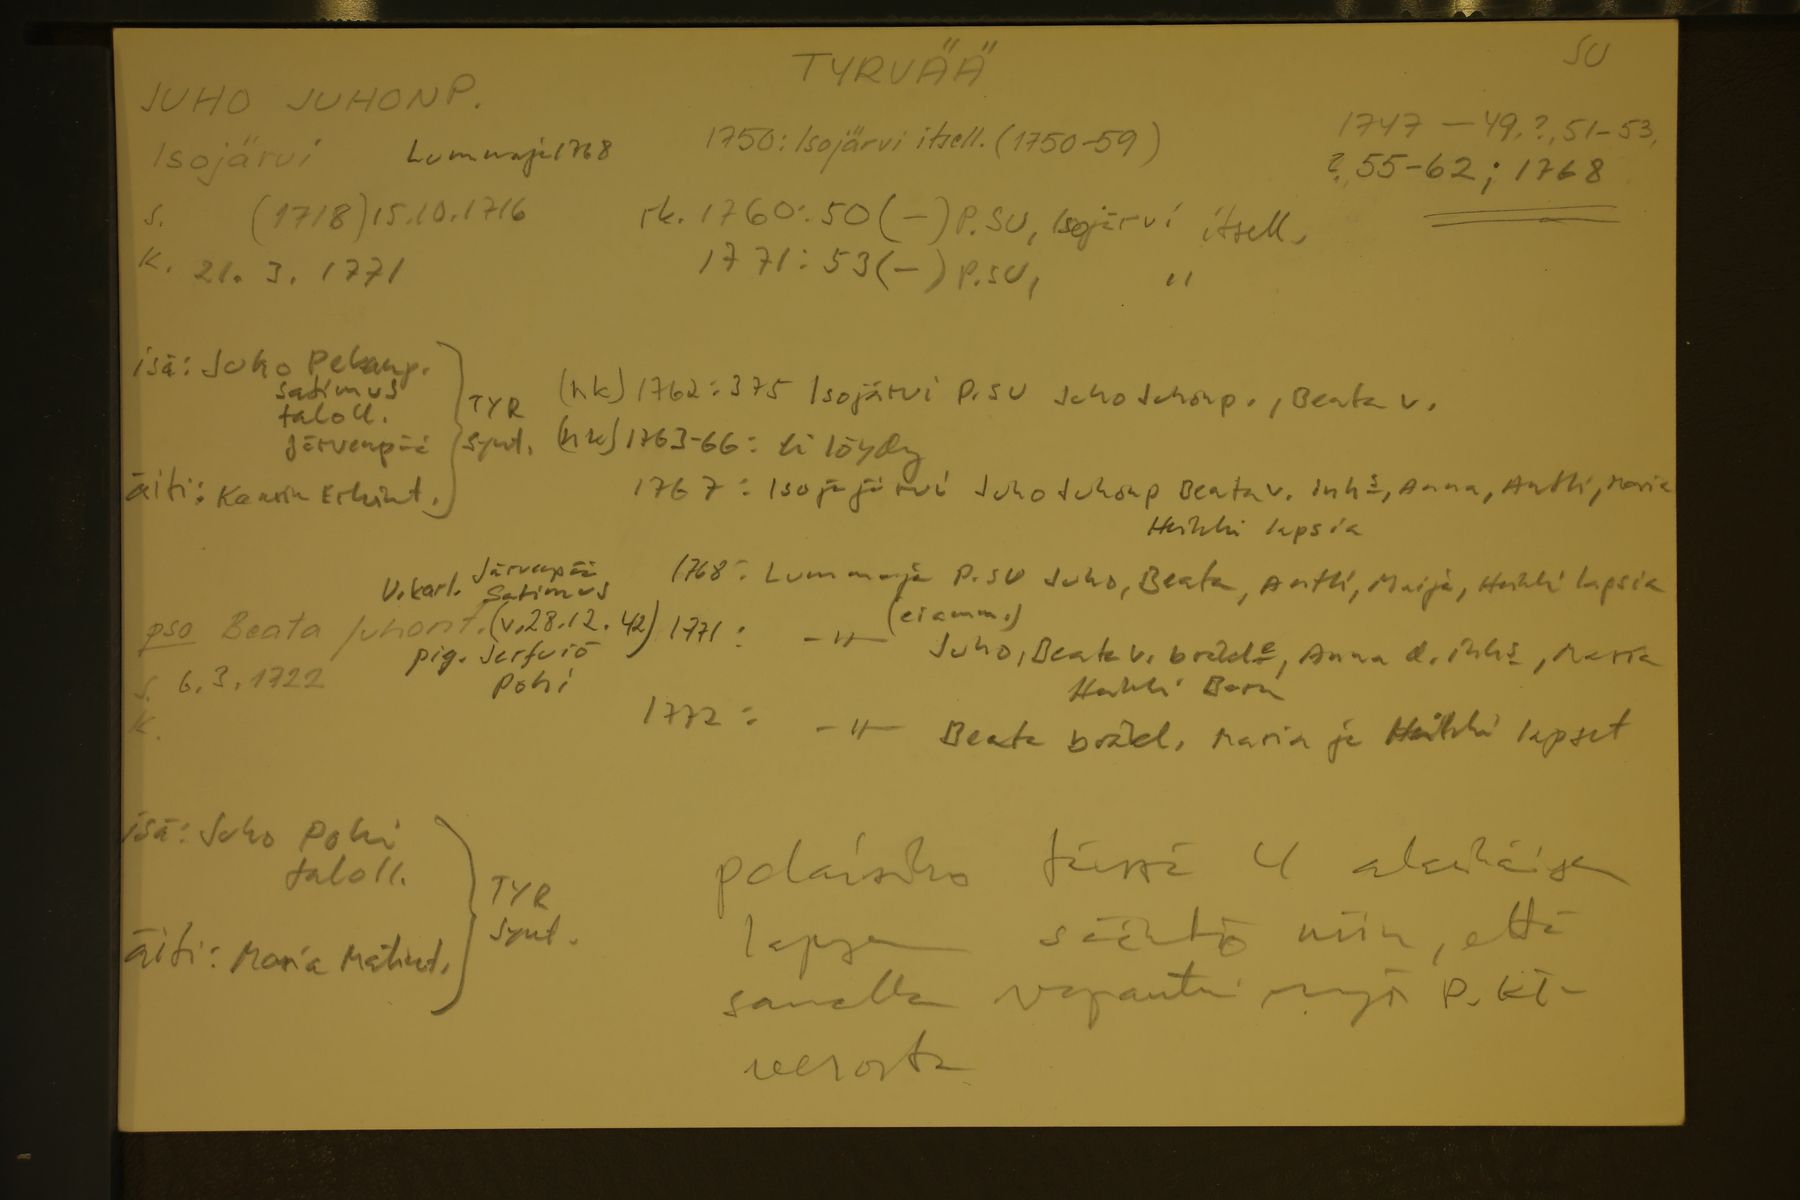 TYRVÄÄ
SU
JUHO JUHONP.
Isojärvi Lummaja 1768
1750: Isojärvi itsell. (1750-59)
1747 - 49, ?, 51-53,
?, 55-62; 1768
s. (1718) 15.10.1716
k. 21. 3. 1771
rk. 1760: 50 (-) P.SU, Isojärvi itsell.
1771: 53 (-) P.SU, "
isä: Juho Pekanp.
Satimus
taloll.
Järvenpää
äiti: Kaarin Erkint.
TYR
synt.
(hk) 1762: 375 Isojärvi P.SU Juho Juhonp., Beata v.
(hk) 1763-66: Ei löydy
1767: Isojärvi Juho Juhonp Beata v. inhs, Anna, Antti, Maria
Heikki lapsia
1768: Lummaja P.SU Juho, Beata, Antti, Maija, Heikki lapsia
(ei amm.)
1771: -"- Juho, Beata v. bräcl., Anna d. inhs, Maria
Heikki Barn
1772: -"- Beata bräcl. Maria ja Heikki lapset
V.karl. Järvenpää
Satimus
pso Beata Juhont. (v. 28.12.42)
pig. Jerfviö
Pohi
s. 6.3.1722
k.
isä: Juho Pohi
taloll.
äiti: Maria Matint.
TYR
synt.
tässä 4 alaikäisen
lapsen sääntö niin, että
vapautui myös P.
verosta